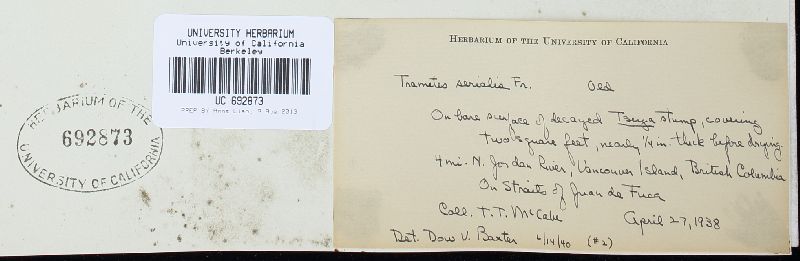 UNIVERSITY HERBARIUM
University of California
Berkeley
UC 692873
HERBARIUM OF THE
692873
UNIVERSITY OF CALIFORNIA
HERBARIUM OF THE UNIVERSITY OF CALIFORNIA
Trametes serialis Fr. Old
On bare surface of decayed Tsuga stump, covering
two square feet, nearly 1/4 in. thick before drying.
4 mi. N. Jordan River, Vancouver Island, British Columbia
On Straits of Juan de Fuca
Coll. T.T. McCabe April 27, 1938
Det. Dow V. Baxter 4/14/40 (#2)